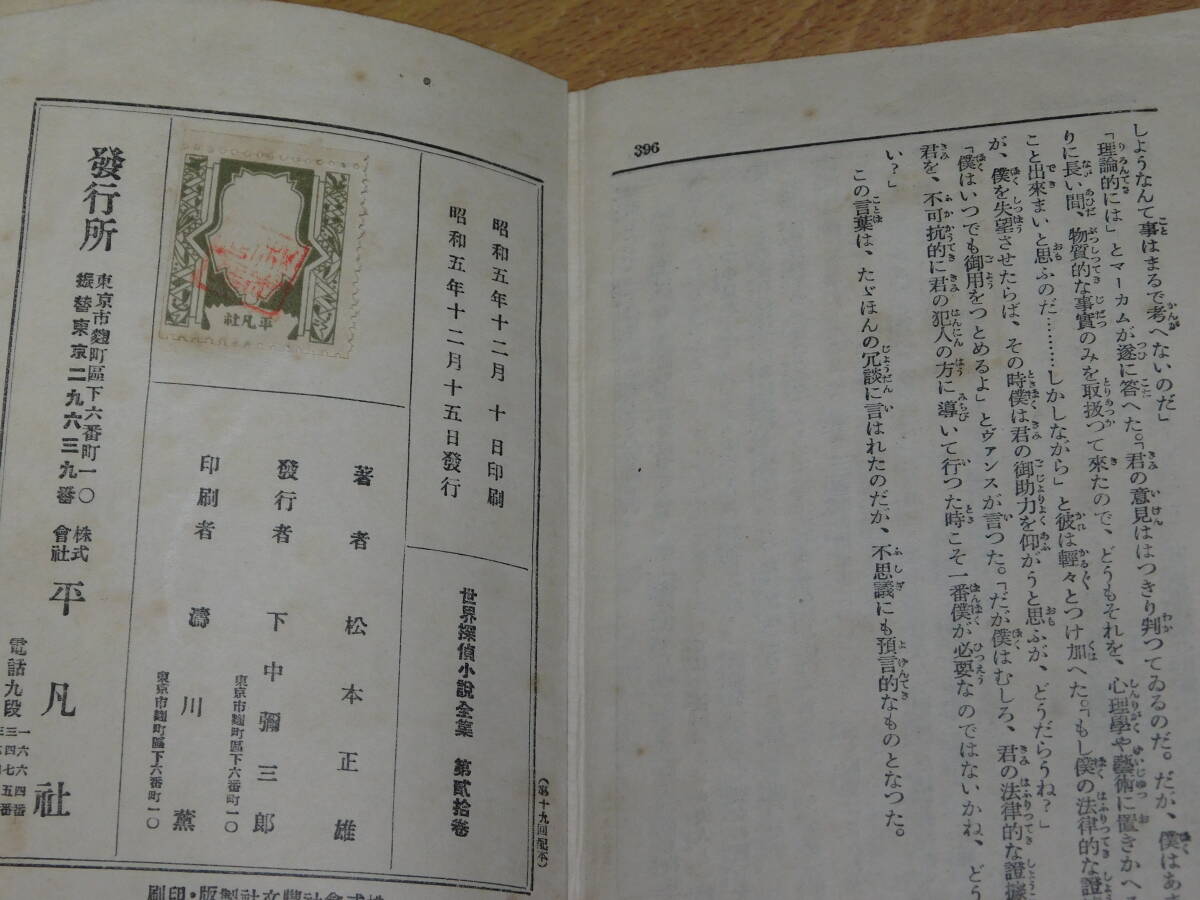 396
しようなんて事はまるで考へないのだ」
「理論的には」とマーカムが遂に答へた。「君の意見ははつきり判つてゐるのだ。だが、僕はあ
りに長い間、物質的な事實のみを取扱つて來たので、どうもそれを、心理學や藝術に置きかへ
こと出來まいと思ふのだ………しかしながら」と彼は輕々とつけ加へた。「もし僕の法律的な證
が、僕を失望させたらば、その時僕は君の御助力を仰がうと思ふが、どうだらうね？」
「僕はいつでも御用をつとめるよ」とヴァンスが言つた。「だが僕はむしろ、君の法律的な證據
君を、不可抗的に君の犯人の方に導いて行つた時こそ一番僕が必要なのではないかね、どう
い？」
この言葉は、たゞほんの冗談に言はれたのだが、不思議にも預言的なものとなつた。
昭和五年十二月十日印刷
昭和五年十二月十五日發行
世界探偵小說全集 第貳拾卷
（第十九回配本）
平凡社
著者 松本正雄
發行者 下中彌三郎
東京市麴町區下六番町一〇
印刷者 濤川薫
東京市麴町區下六番町一〇
發行所
東京市麴町區下六番町一〇
振替東京二九六三九番
株式會社 平凡社
電話九段